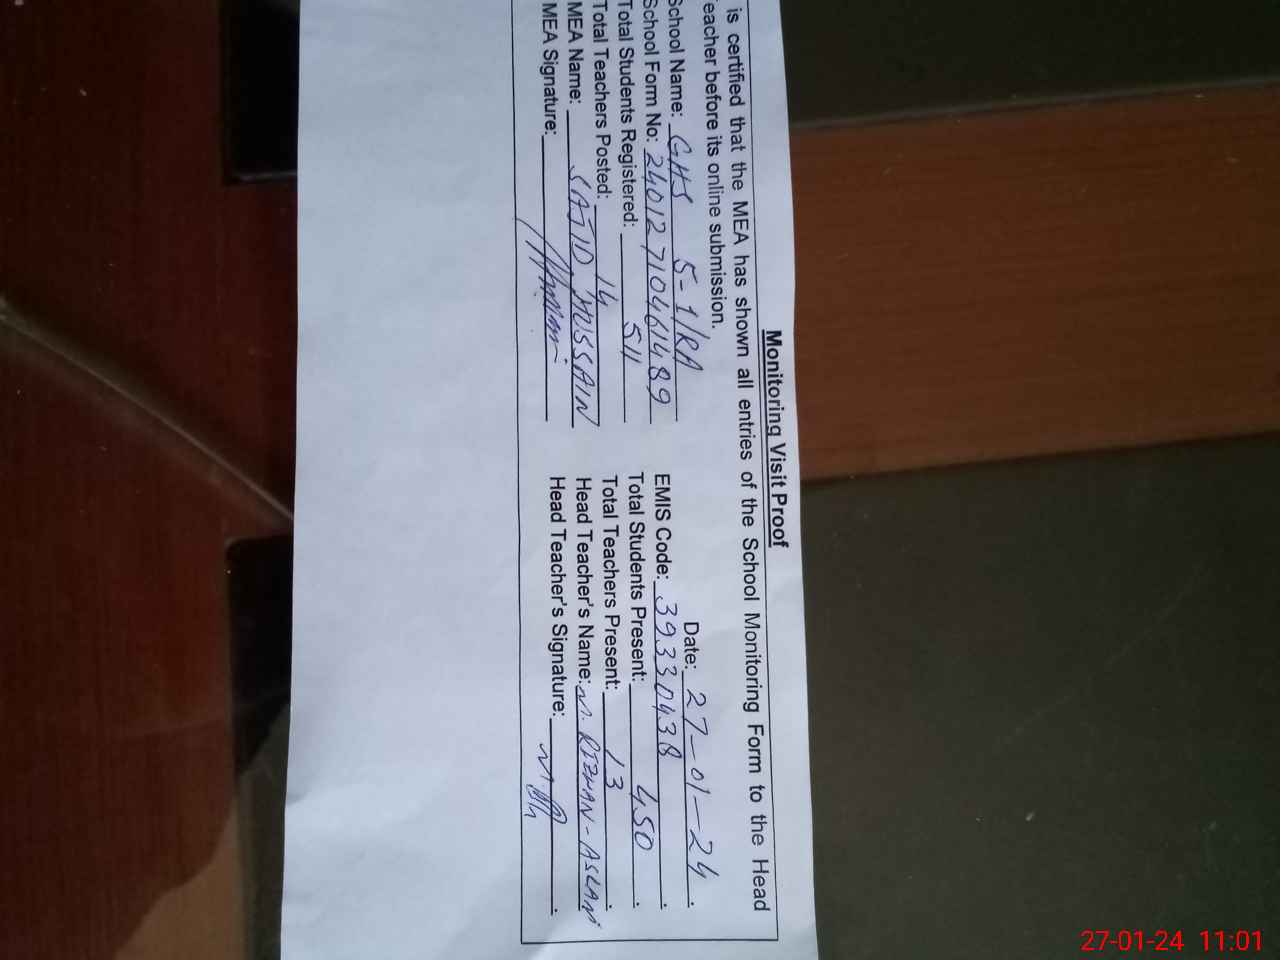 Monitoring Visit Proof
is certified that the MEA has shown all entries of the School Monitoring Form to the Head
eacher before its online submission.
Date: 27-01-24.
School Name: GHS 5-1/RA
School Form No: 24012710461489 EMIS Code: 39330438.
Total Students Registered: 511 Total Students Present: 450.
Total Teachers Posted: 14 Total Teachers Present: 13.
MEA Name: SAJID HUSSAIN Head Teacher's Name: M. RIZWAN-ASLAM
MEA Signature: Head Teacher's Signature:
27-01-24 11:01